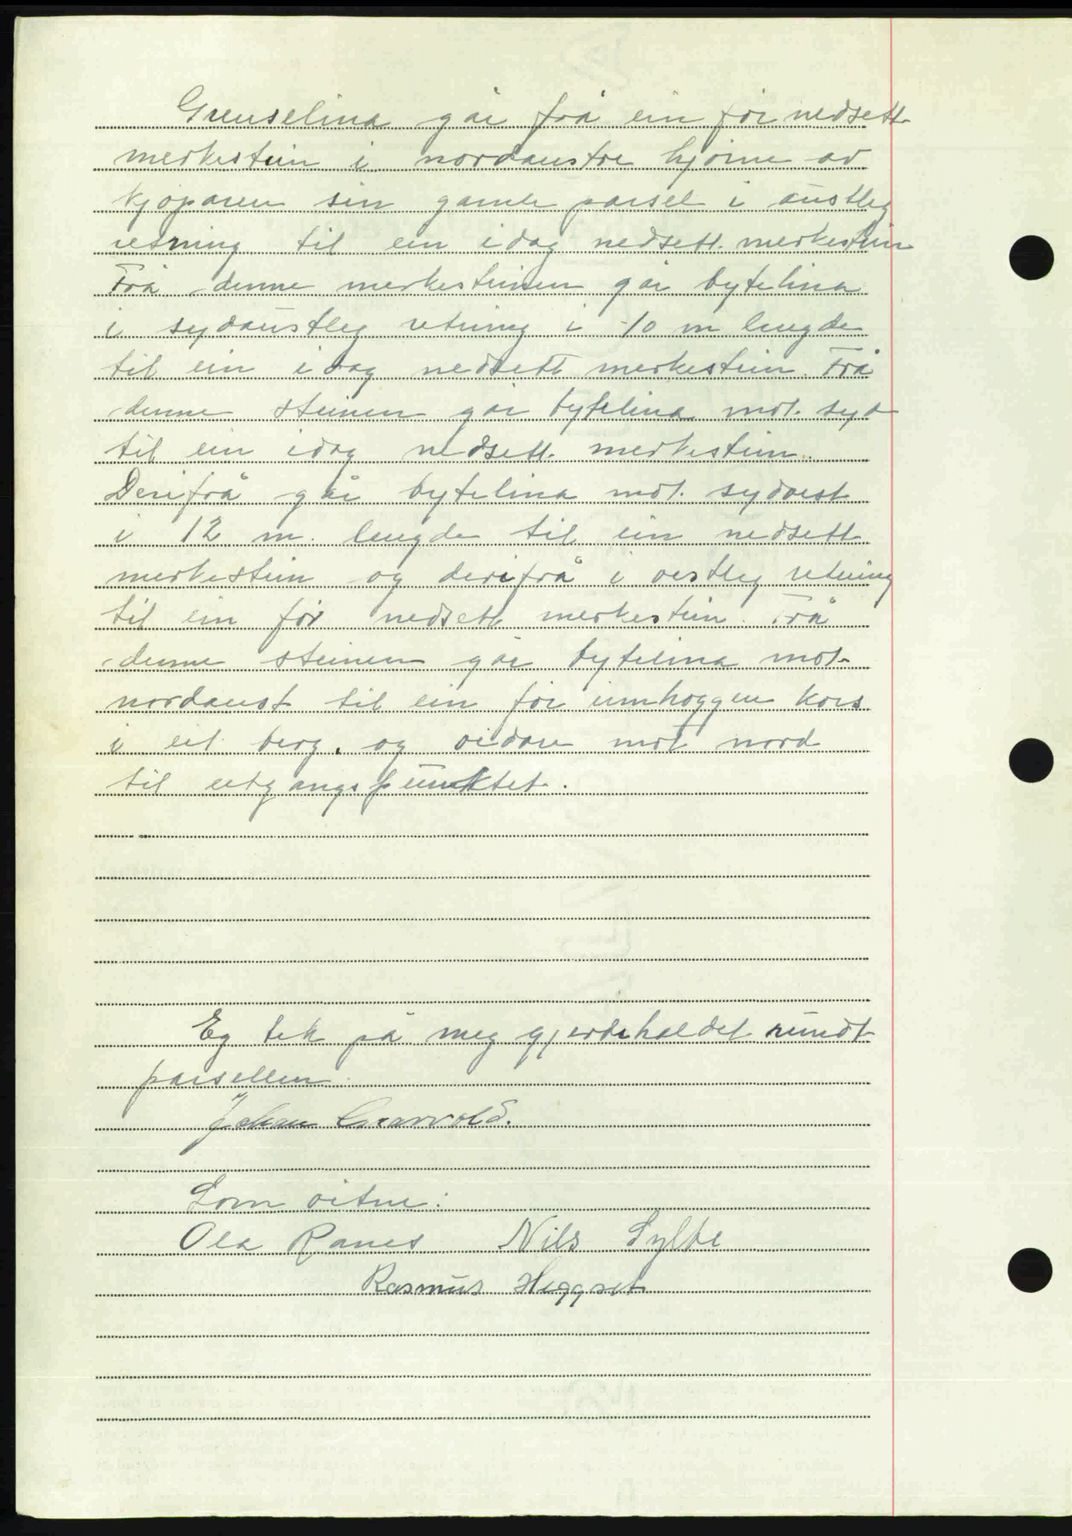 Grenselina går frå ein før nedsett
merkestein i nordaustre hjørne av
kjøparen sin gamle parsel i austleg
retning til ein idag nedsett merkestein
Frå denne merkesteinen går bytelina
i sydaustleg retning i 10 m lengde
til ein idag nedsett merkestein. Frå
denne steinen går bytelina mot syd
til ein idag nedsett merkestein.
Derifrå går bytelina mot sydvest
i 12 m. lengde til ein nedsett
merkestein og derifrå i vestleg retning
til ein før nedsett merkestein. Frå
denne steinen går bytelina mot
nordaust til ein før innhoggen kors
i eit berg. og vidare mot nord
til utgangspunktet.
Eg tek på meg gjerdehaldet rundt
parsellen.
Johan
Som vitne:
Ola Ranes Nils Sylte
Rasmus Heggset